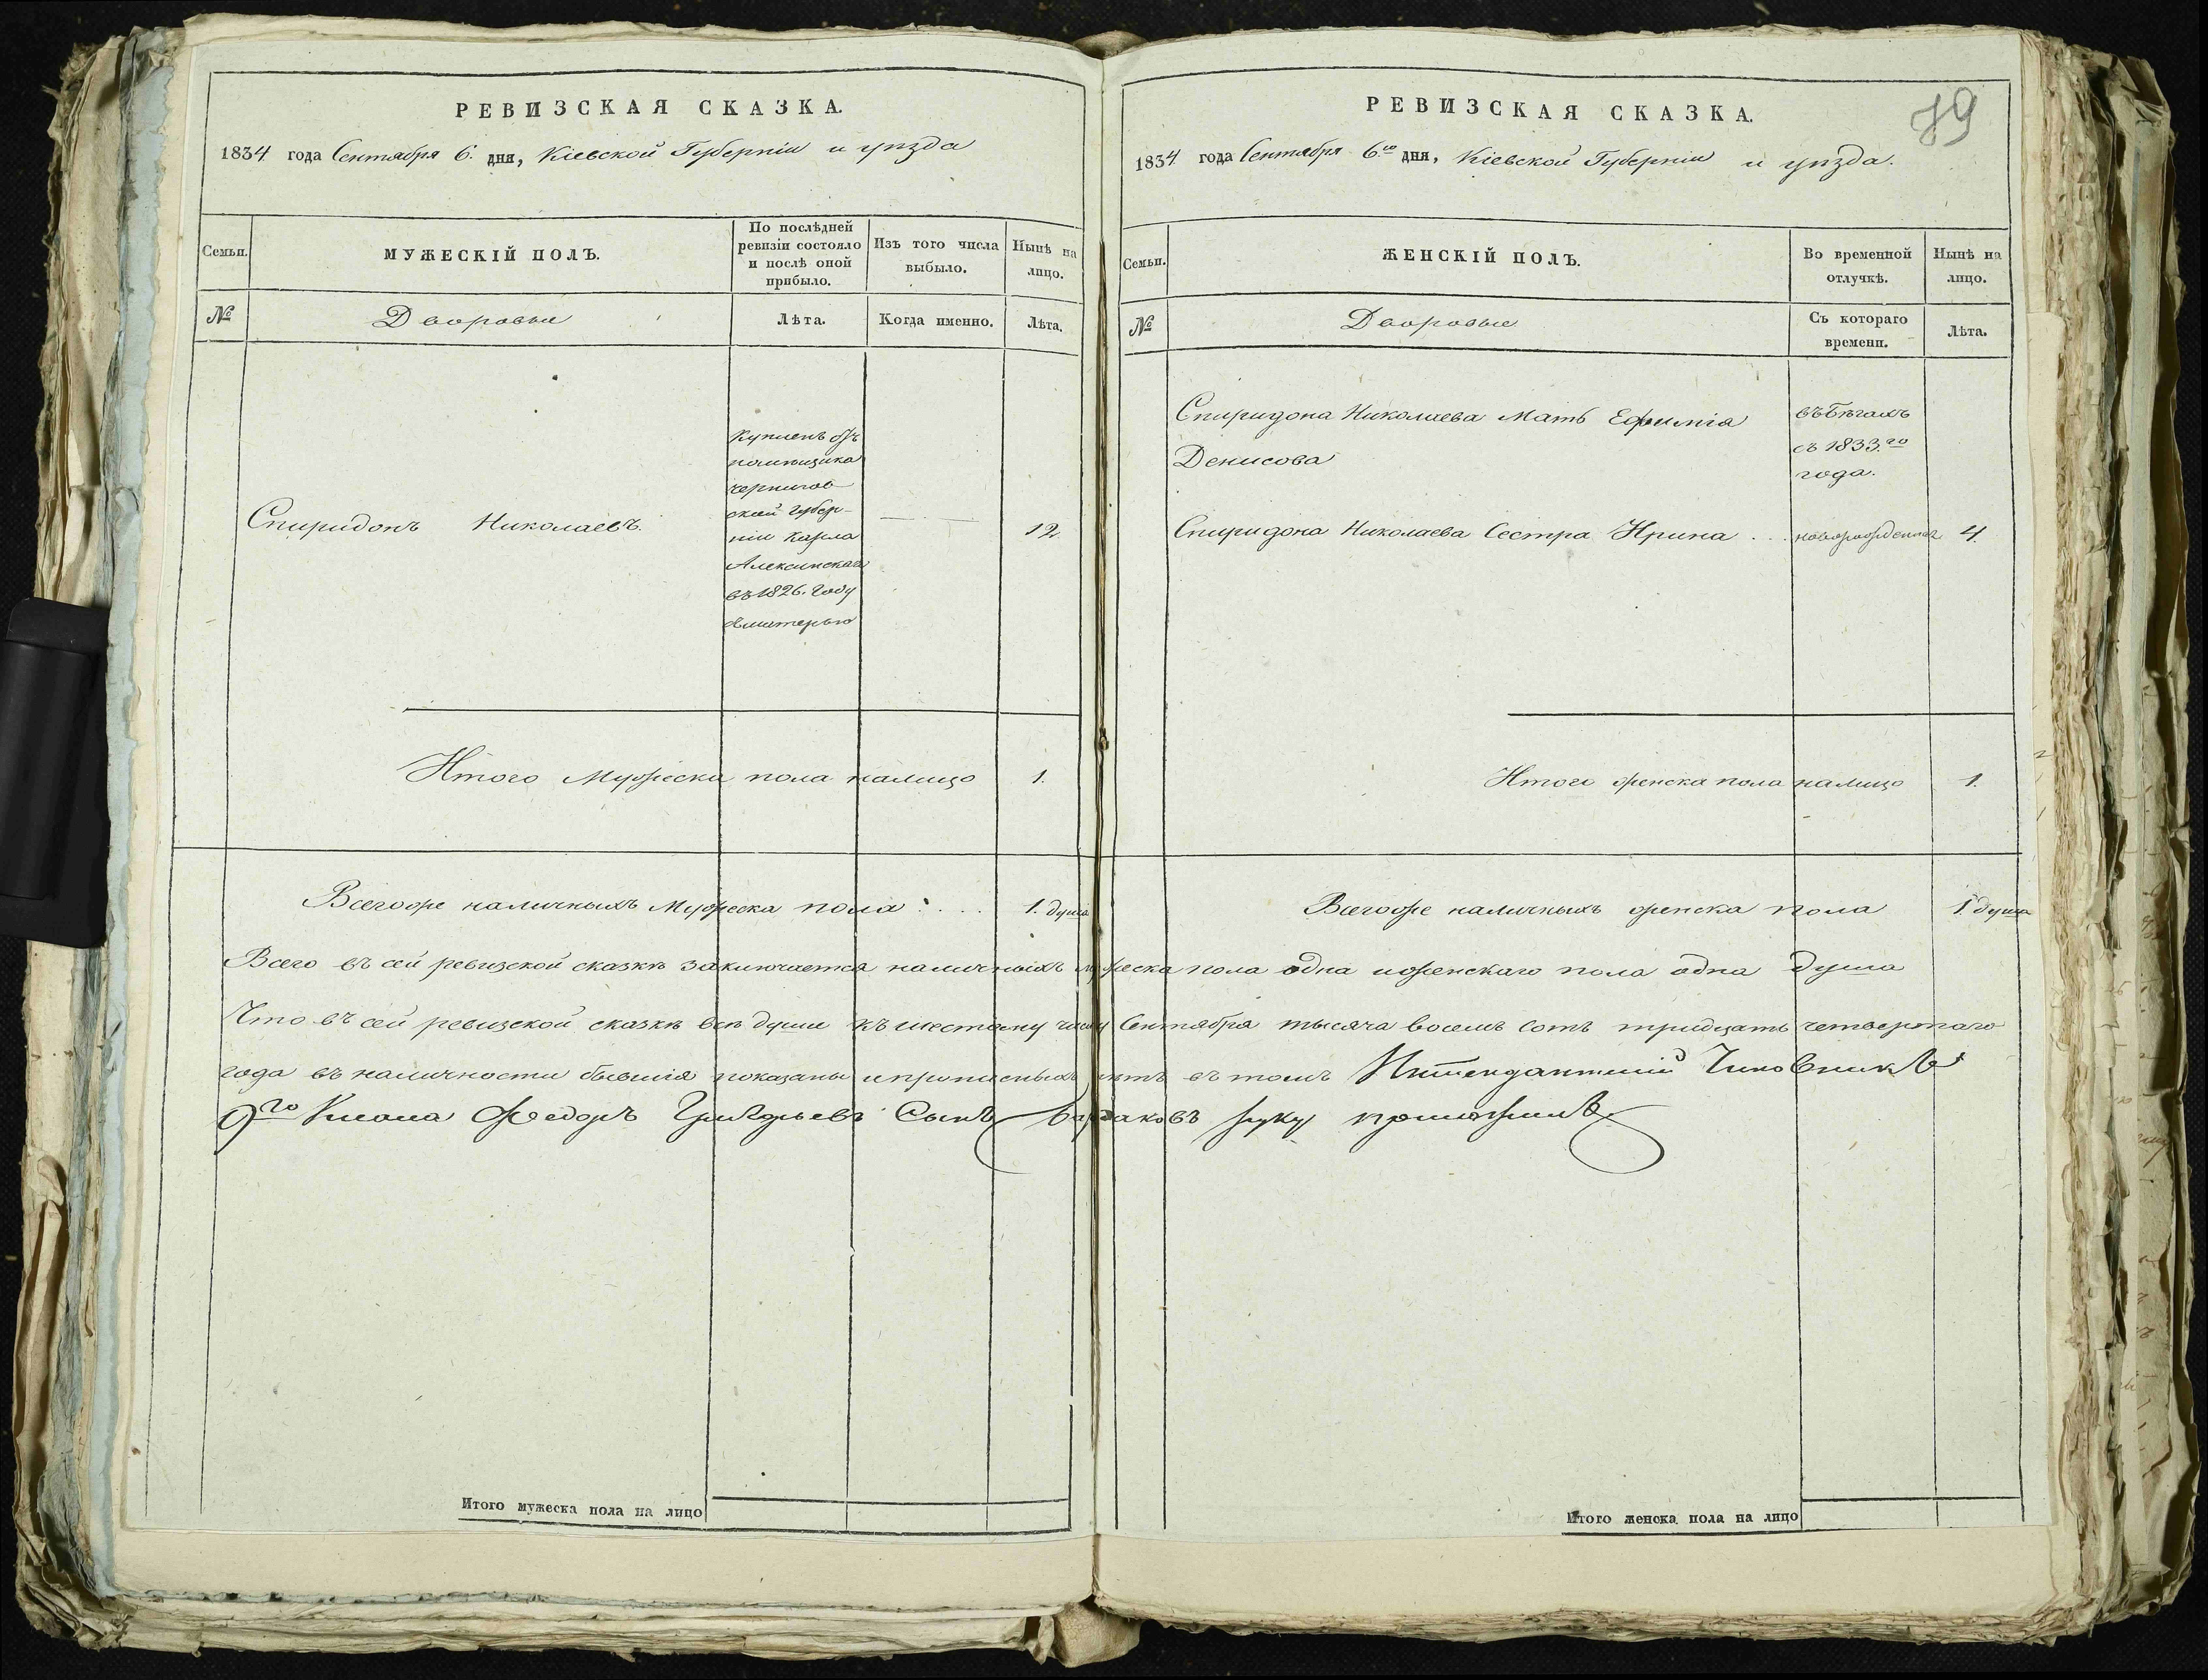 РЕВИЗСКАЯ СКАЗКА.
1834 года Сентября 6. дня, Кіевской Губерніи и уѣзда
Семьи.
МУЖЕСКІЙ ПОЛЪ.
По послѣдней
ревизіи состояло
и послѣ оной
прибыло.
Изъ того числа
выбыло.
Нынѣ на
лицо.
№
Дворовые
Лѣта.
Когда именно.
Лѣта.
Спиридонъ Николаевъ.
Купленъ отъ
помѣщика
чернигов
ской Губер-
ніи Карла
въ 1826. Году
сматерью
12.
Итого Мужеска пола налицо 1.
Всегоже наличныхъ Мужеска пола 1. душа
РЕВИЗСКАЯ СКАЗКА.
79
1834 года Сентября 6.го дня, Кіевской Губерніи и уѣзда.
Семьи.
ЖЕНСКІЙ ПОЛЪ.
Во временной
отлучкѣ.
Нынѣ на
лицо.
№
Дворовые
Съ котораго
времени.
Лѣта.
Спиридона Николаева Мать Ефимія
Денисова
въ бѣгахъ
съ 1833.го
года.
Спиридона Николаева Сестра Ирина ... новорожденная 4.
Итого женска пола налицо 1.
Всегоже наличныхъ женска пола 1. душа
Всего въ сей ревизской сказкѣ заключается наличныхъ мужеска пола одна иженскаго пола одна душа
Что въ сей ревизской сказкѣ всѣ души къ шестому числу Сентября тысяча восемь сотъ тридцать четвертаго
года въ наличности бывшія показаны ипрописныхъ нѣтъ въ томъ Интендантский Чиновникъ
9го Класа Федоръ сынъ руку приложилъ
Итого мужеска пола на лицо
Итого женска пола на лицо